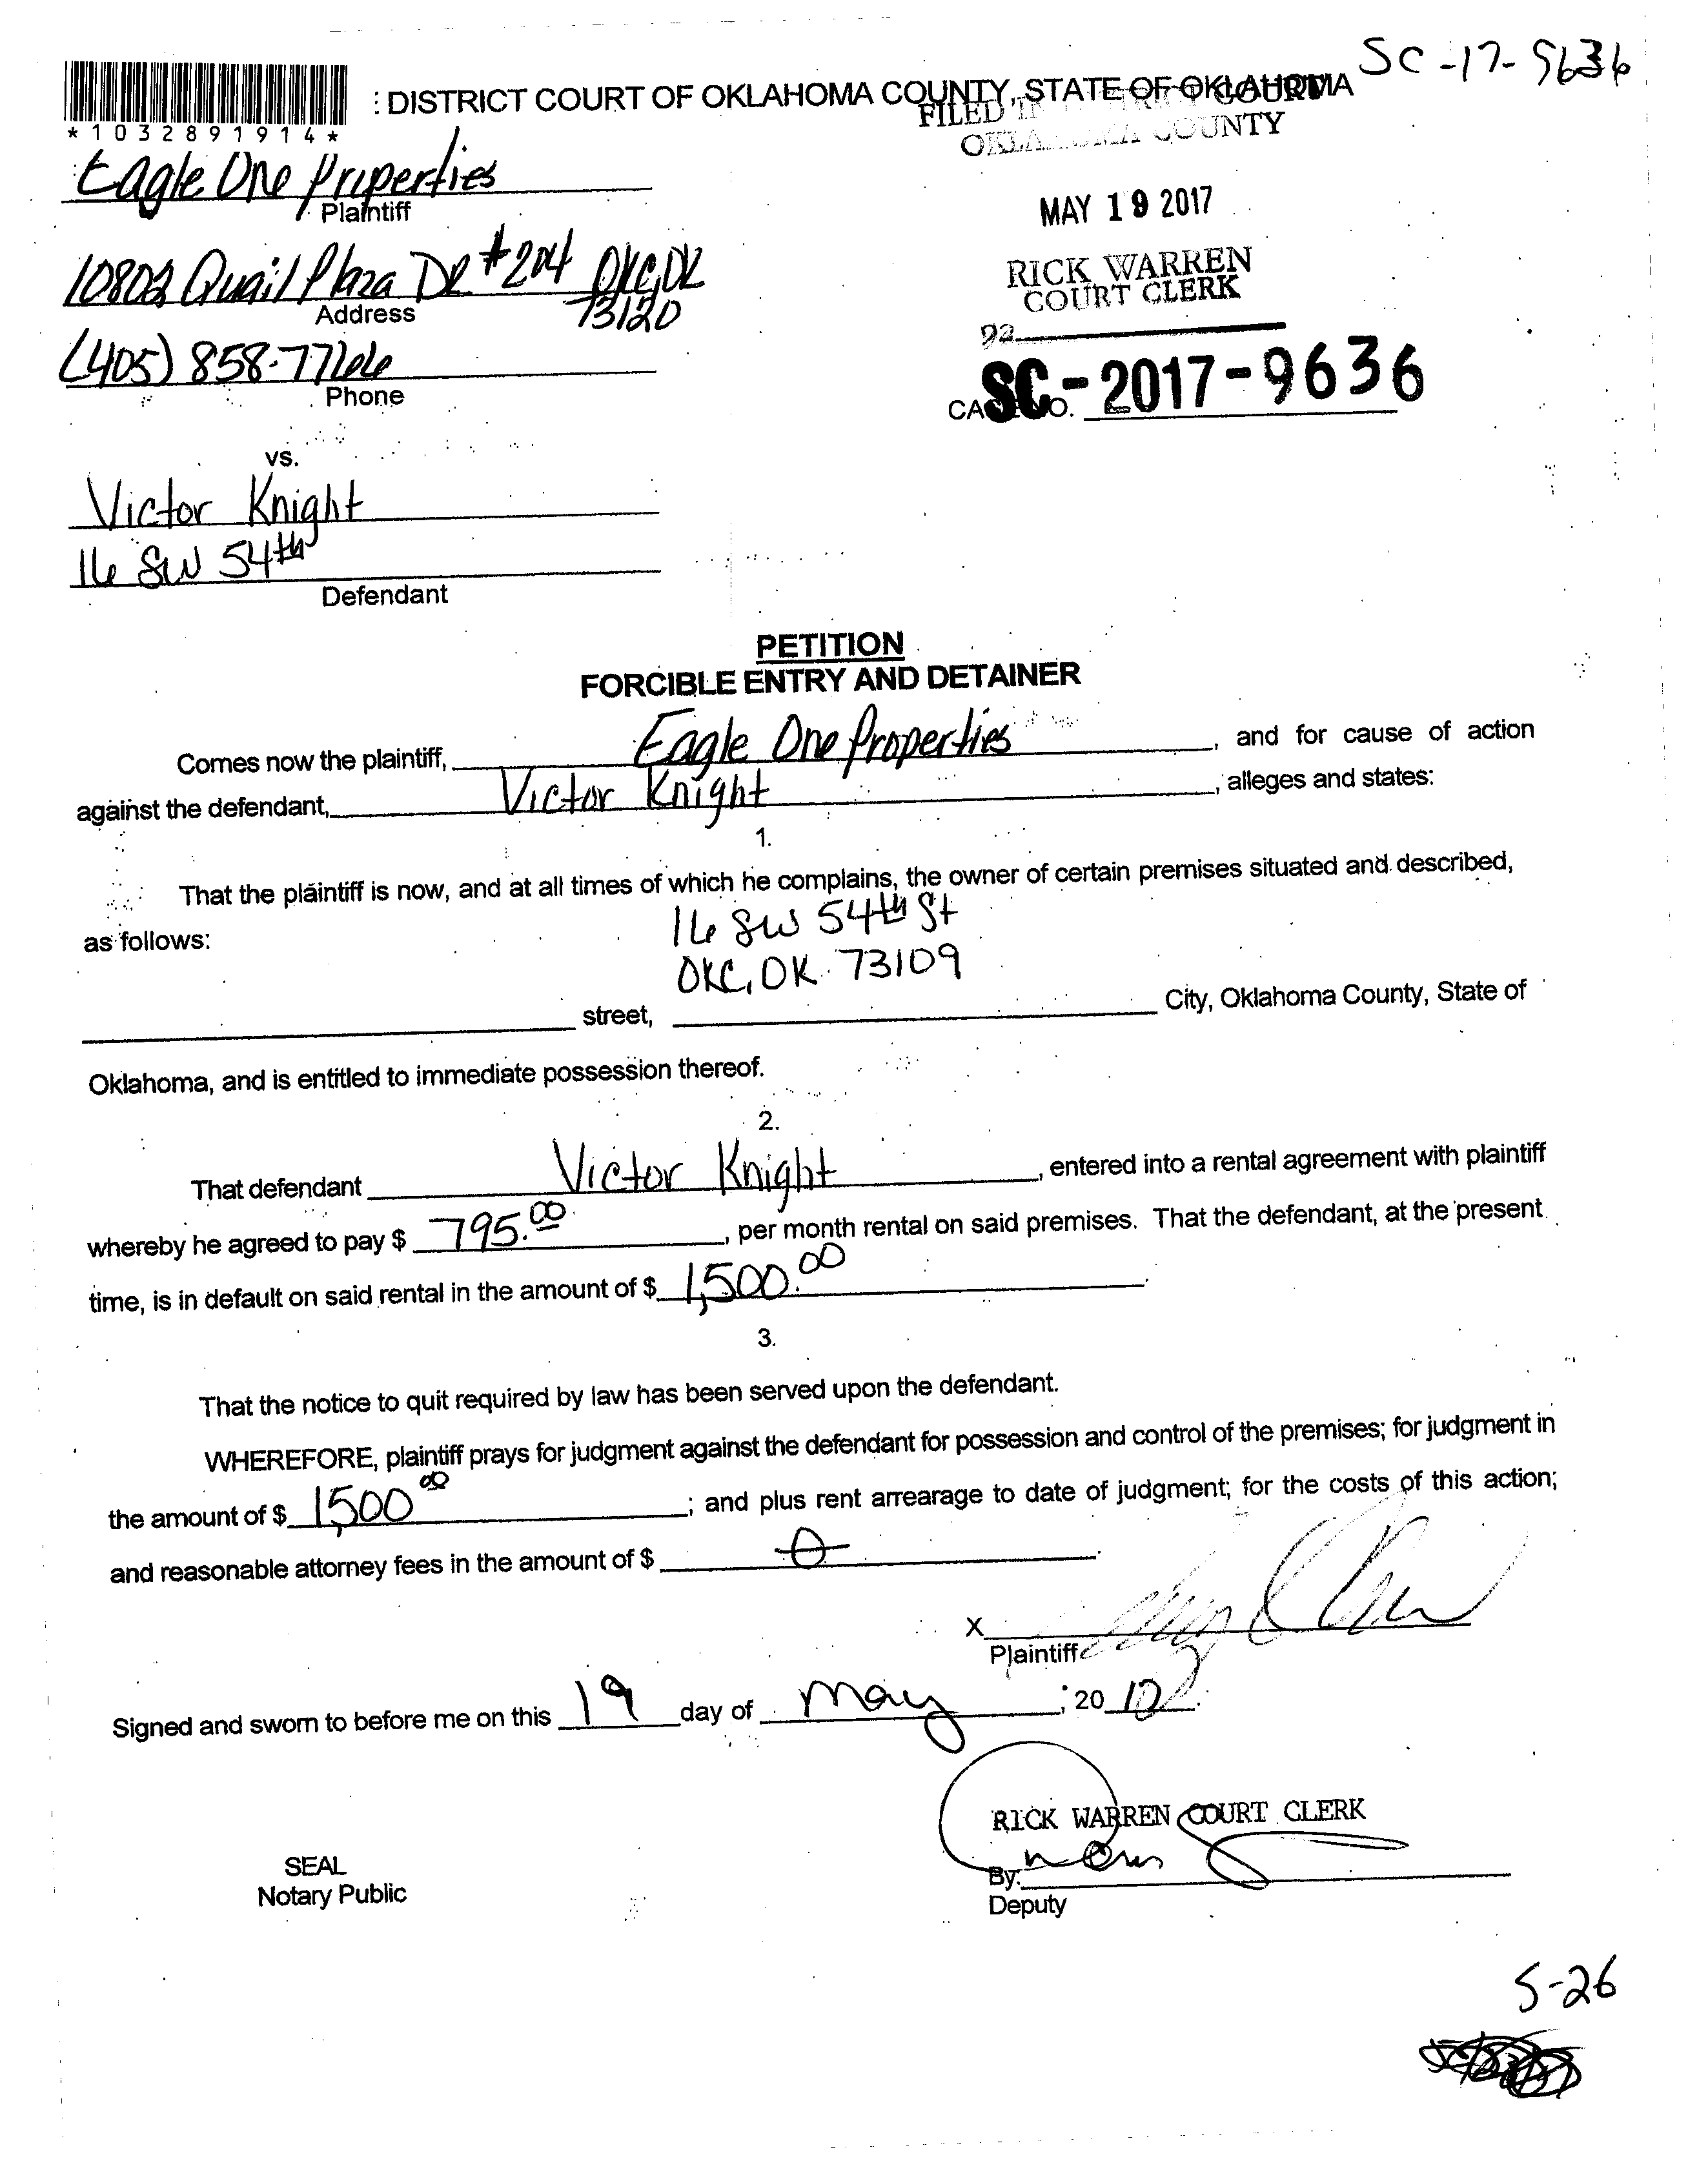 SC-17-9636
*1032891914*
: DISTRICT COURT OF OKLAHOMA COUNTY, STATE OF OKLAHOMA
FILED IN DISTRICT COURT
OKLAHOMA COUNTY
Eagle One Properties
Plaintiff
MAY 19 2017
10802 Quail Plaza DR #204 OKC, OK
73120
Address
RICK WARREN
COURT CLERK
(405) 858-7766
Phone
92
CASE NO. SC-2017-9636
vs.
Victor Knight
16 SW 54th
Defendant
PETITION
FORCIBLE ENTRY AND DETAINER
Comes now the plaintiff, Eagle One Properties, and for cause of action
against the defendant, Victor Knight, alleges and states:
1.
That the plaintiff is now, and at all times of which he complains, the owner of certain premises situated and described,
as follows: 16 SW 54th St
OKC, OK 73109
street, City, Oklahoma County, State of
Oklahoma, and is entitled to immediate possession thereof.
2.
That defendant Victor Knight, entered into a rental agreement with plaintiff
whereby he agreed to pay $ 795.00, per month rental on said premises. That the defendant, at the present
time, is in default on said rental in the amount of $ 1,500.00.
3.
That the notice to quit required by law has been served upon the defendant.
WHEREFORE, plaintiff prays for judgment against the defendant for possession and control of the premises; for judgment in
the amount of $ 1,500 00; and plus rent arrearage to date of judgment; for the costs of this action;
and reasonable attorney fees in the amount of $ 0.
X
Plaintiff
Signed and sworn to before me on this 19 day of May, 20 17.
RICK WARREN COURT CLERK
SEAL
Notary Public
By:
Deputy
5-26